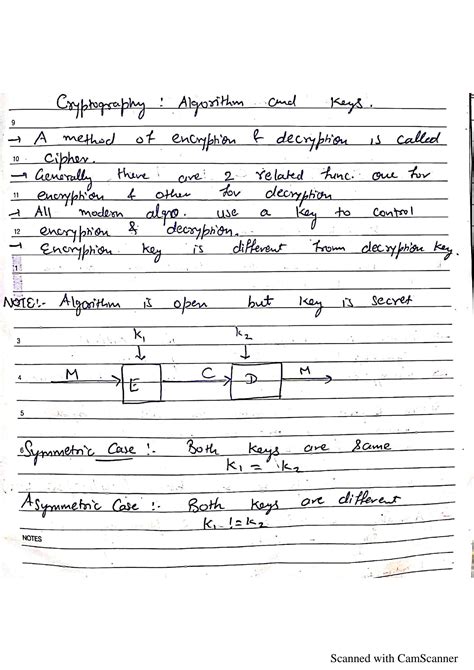 Cryptography : Algorithm and Keys.
9
→ A method of encryption & decryption is called
10 Cipher.
→ Generally there are 2 related func. one for
11 encryption & other for decryption
→ All modern algro. use a key to control
12 encryption & decryption.
→ Encryption key is different from decryption key.
1
NOTE:- Algorithm is open but key is secret
3 k1 k2
4 M E C D M
5
Symmetric Case :- Both keys are same
k1 = k2
Asymmetric Case :- Both keys are different
k1 != k2
NOTES
Scanned with CamScanner